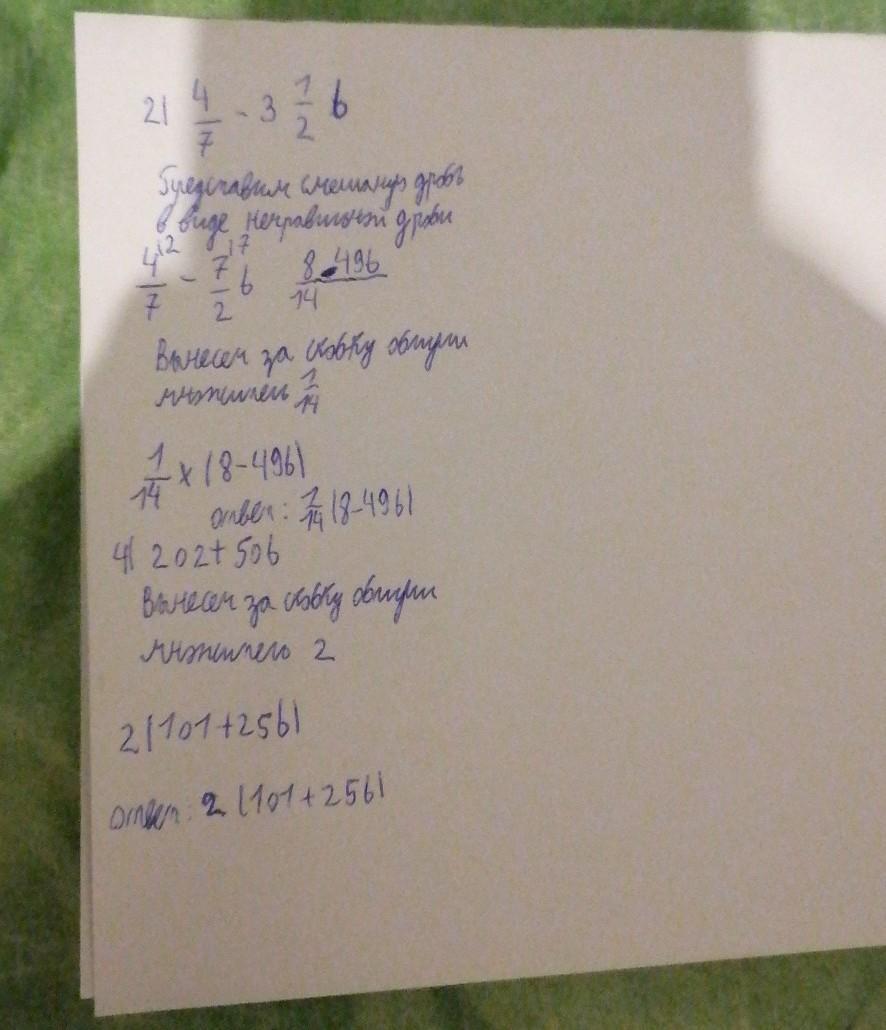 2) 4/7 - 3 1/2 b
Представим смешаную дробь
в виде неправильной дроби
4/7 |2 - 7/2 |7 b   8-49b/14
Вынесем за скобку общий
множитель 1/14
1/14 x (8-49b)
ответ: 1/14 (8-49b)
4) 202+50b
Вынесем за скобку общий
множитель 2
2(101+25b)
ответ: 2 (101+25b)